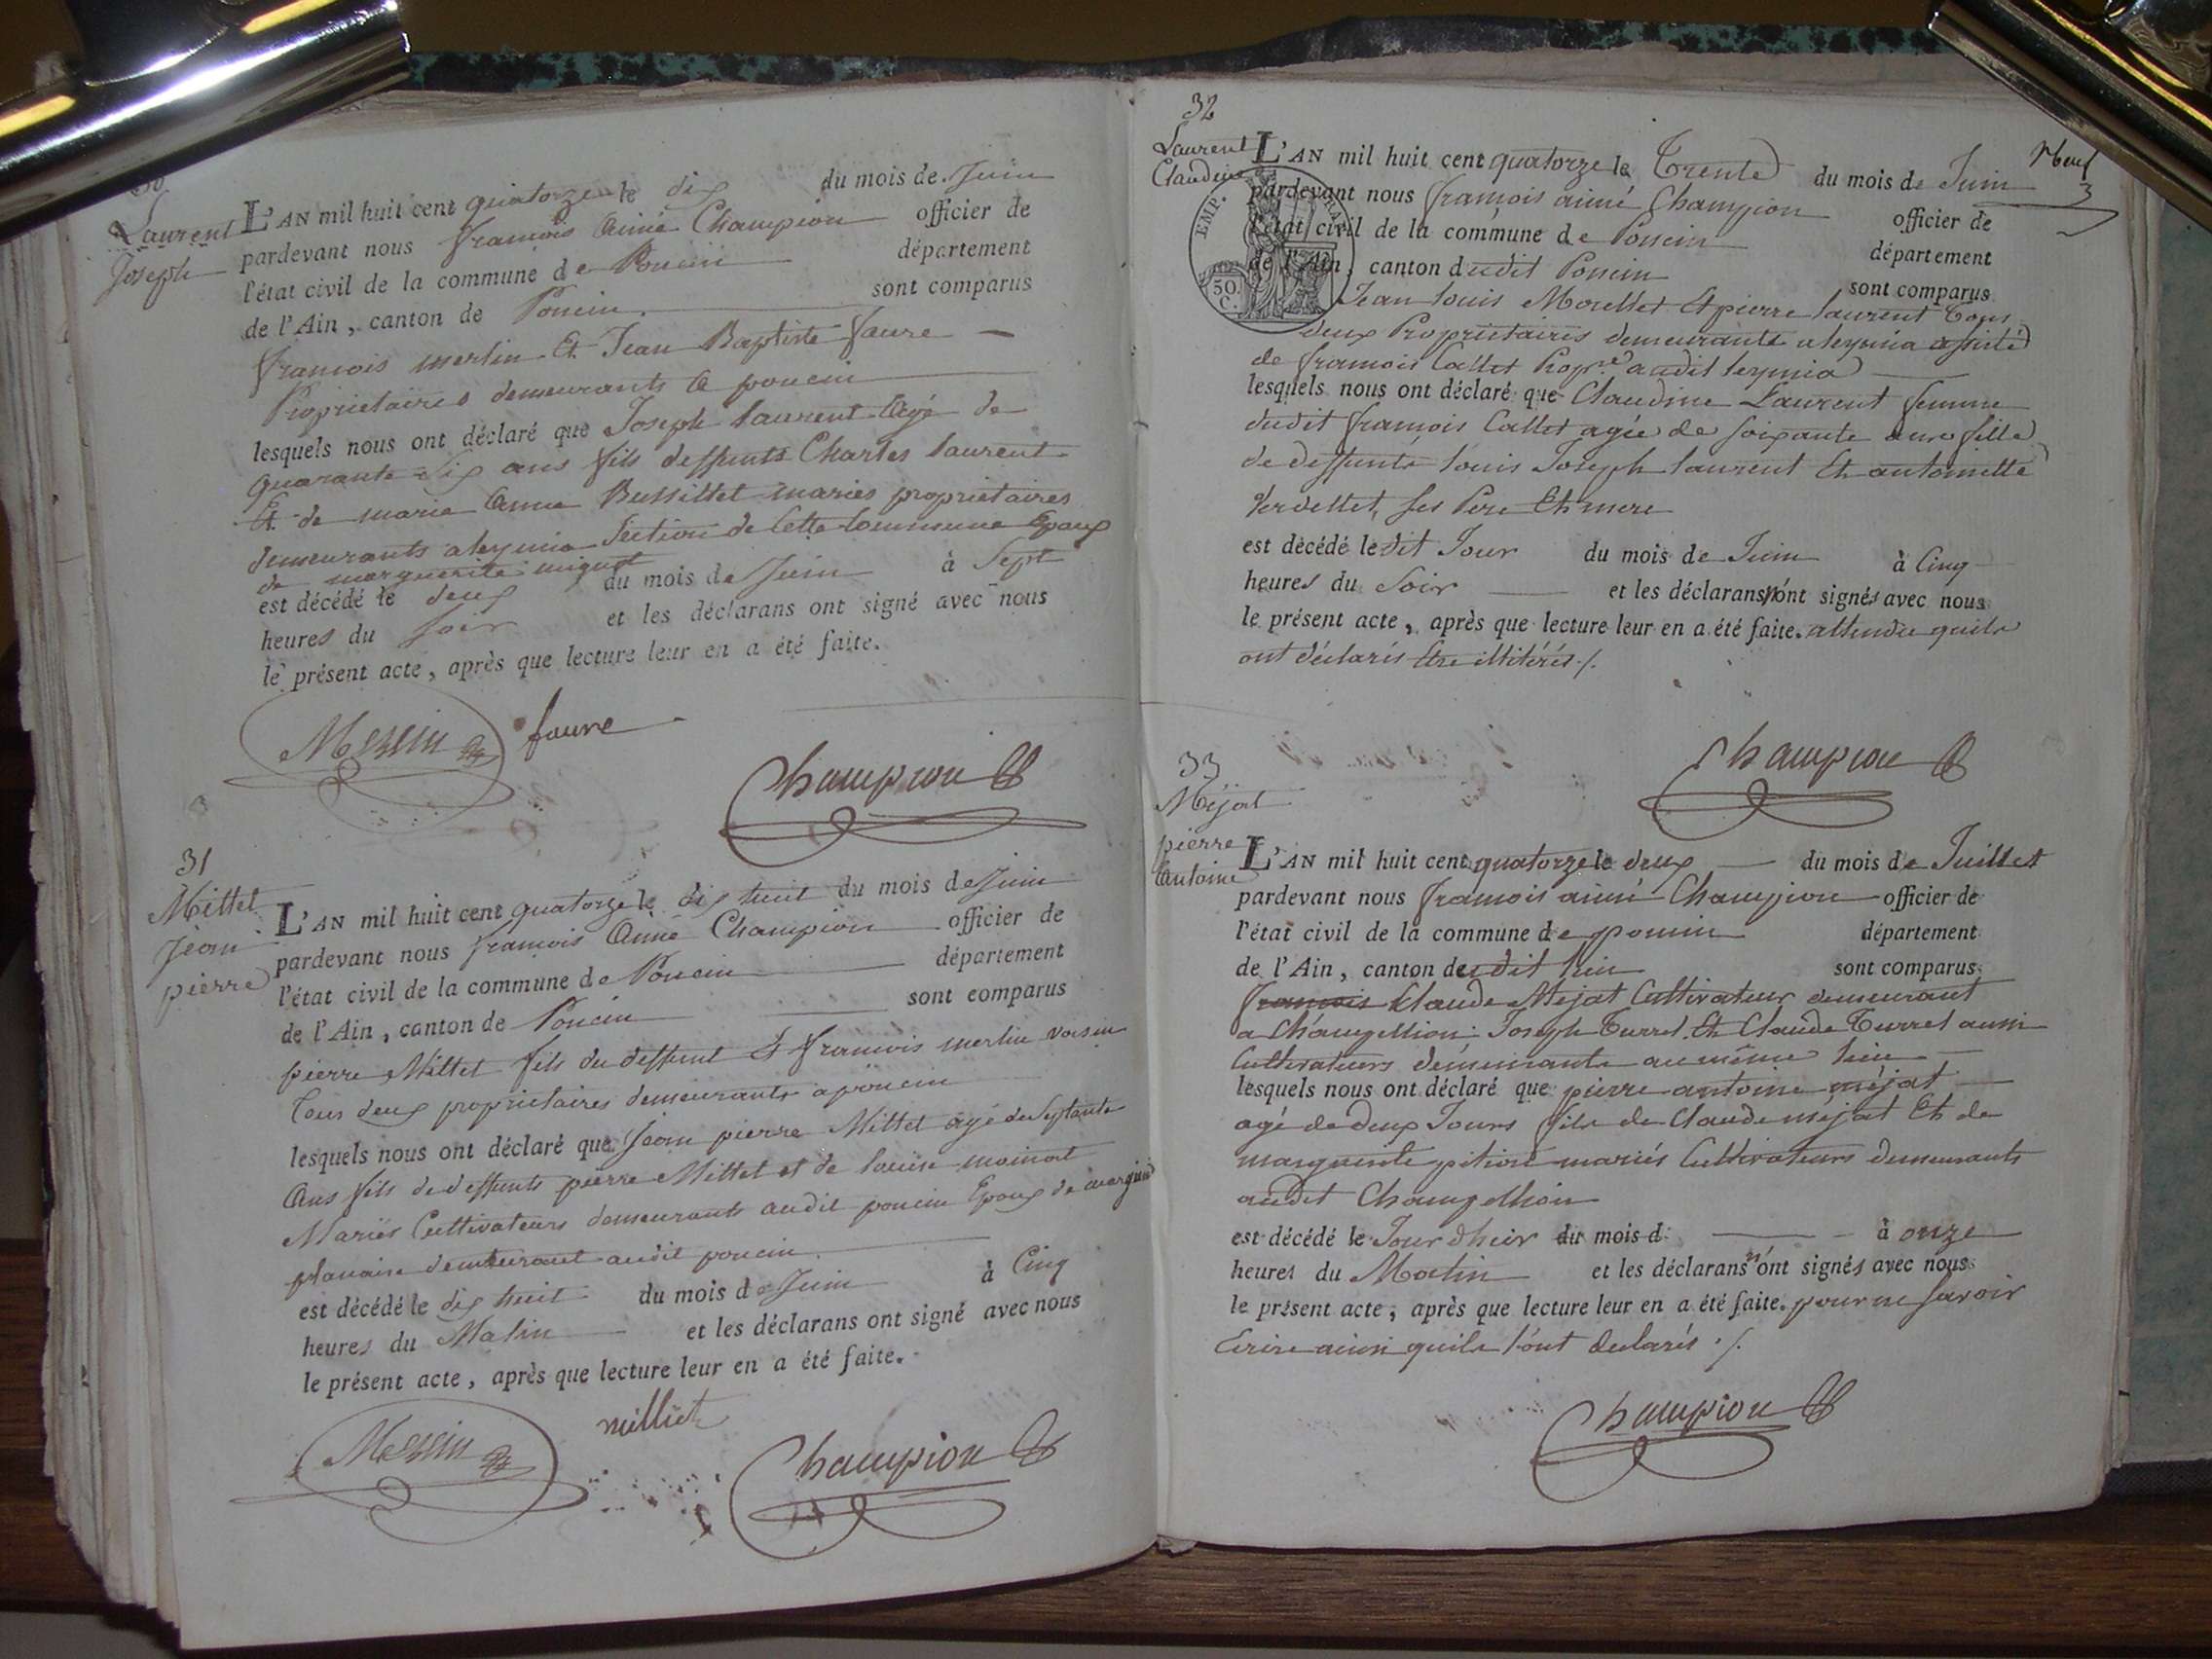 30
Laurent
Joseph
L'AN mil huit cent quatorze le dix du mois de Juin
pardevant nous françois Aimé Champion officier de
l'état civil de la commune de Poncin département
de l'Ain, canton de Poncin. sont comparus
françois merlin Et Jean Baptiste faure
Proprietaires demeurants a poncin
lesquels nous ont déclaré que Joseph laurent Agé de
quarante six ans fils deffunts Charles laurent
Et de marie Anne Bussillet mariés propriétaires
demeurants a leymia Section de Cette Commune Epoux
de marguerite mignot
est décédé le deux du mois de Juin à Sept
heures du Soir et les déclarans ont signé avec nous
le présent acte, après que lecture leur en a été faite.
Merlin faure
Champion
31
Millet
Jean
pierre
L'AN mil huit cent quatorze le dix huit du mois de Juin
pardevant nous françois Aimé Champion officier de
l'état civil de la commune de Poncin département
de l'Ain, canton de Poncin sont comparus
pierre Millet fils du deffunt Et francois merlin voisin
Tous deux proprietaires demeurants a poncin
lesquels nous ont déclaré que Jean pierre Millet agé de Septante
Ans fils de deffunts pierre Millet et de louise moinat
Mariés Cultivateurs demeurants audit poncin Epoux de
demeurant audit poncin.
est décédé le dix huit du mois de Juin à Cinq
heures du Matin et les déclarans ont signé avec nous
le présent acte, après que lecture leur en a été faite.
Merlin milliet
Champion
32
Laurent
Claudine
Neuf
3
EMP.
50.
C.
L'AN mil huit cent quatorze le Trente du mois de Juin
pardevant nous françois aimé Champion officier de
l'état civil de la commune de Poncin département
de l'Ain, canton dudit Poncin sont comparus
Jean louis Morellet Et pierre laurent Tous
deux Proprietaires demeurants a leymia assisté
de francois Callet Prop.re audit leymia
lesquels nous ont déclaré que Claudine Laurent femme
dudit françois Callet agée de soixante ans fille
de deffunts louis Joseph laurent Et antoinette
Verdellet, ses Pere Et mere
est décédé le dit Jour du mois de Juin à Cinq
heures du Soir et les déclarans n'ont signés avec nous
le présent acte, après que lecture leur en a été faite. attendu quils
ont déclarés être illitérés ./.
Champion
33
Méjat
pierre
Antoine
L'AN mil huit cent quatorze le deux du mois de Juillet
pardevant nous françois aimé Champion officier de
l'état civil de la commune de poncin département
de l'Ain, canton dudit lieu sont comparus
francois Claude Mejat Cultivateur demeurant
a Champellion. Joseph Turrel Et Claude Turrel aussi
Cultivateurs demeurants au même lieu
lesquels nous ont déclaré que pierre antoine méjat
agé de deux Jours fils de Claude méjat Et de
marguerite pitiou mariés Cultivateurs demeurants
audit Champellion
est décédé le Jour d'hier du mois d à onze
heures du Matin et les déclarans n'ont signés avec nous
le présent acte, après que lecture leur en a été faite. pour ne savoir
Ecrire ainsi quils l'ont declarés ./.
Champion